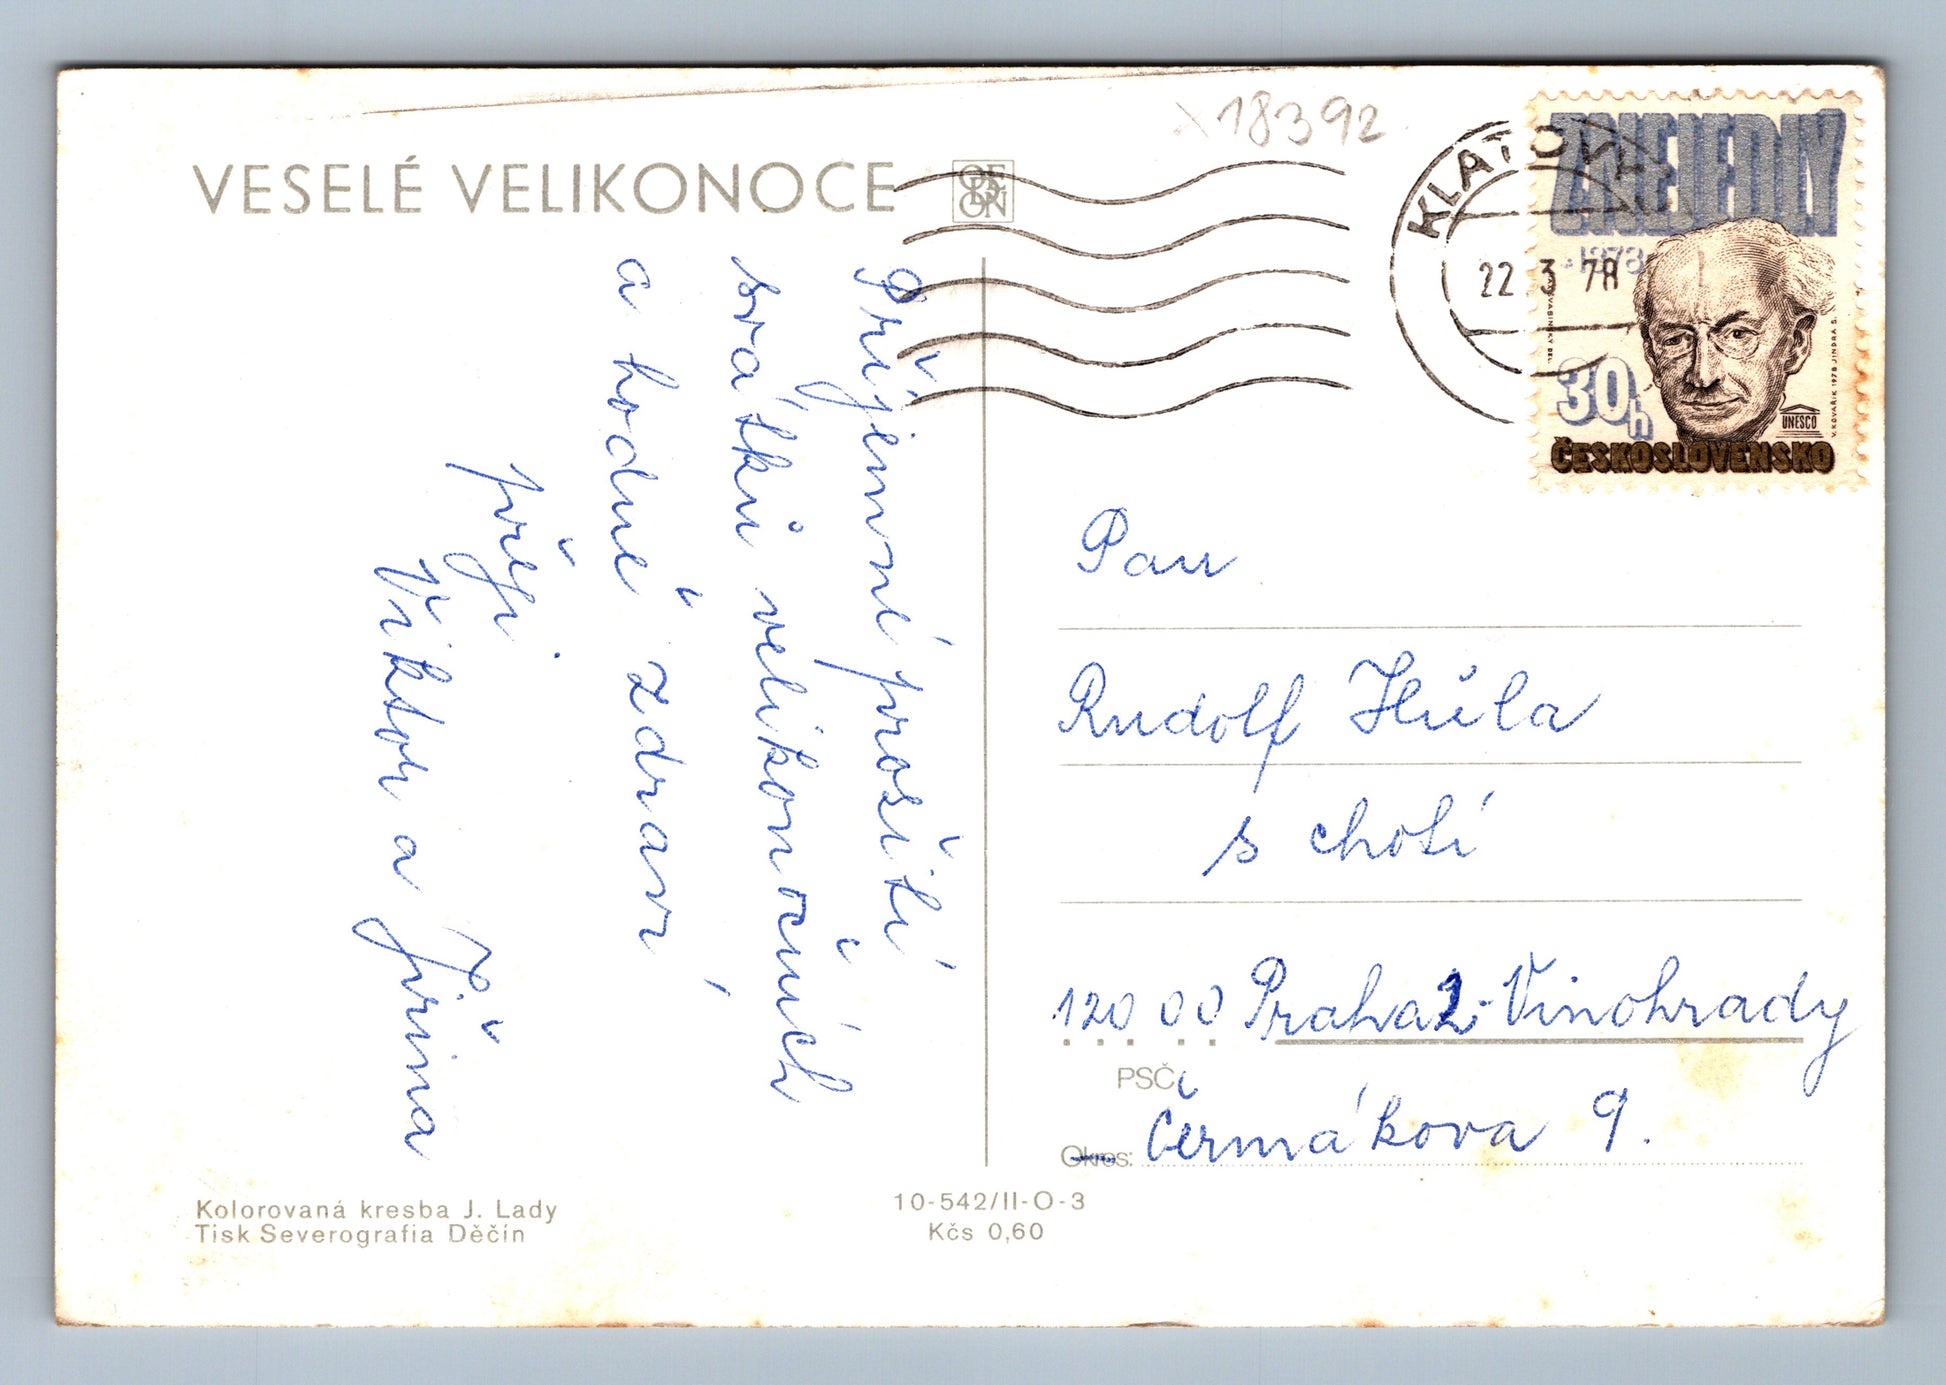 18392
VESELÉ VELIKONOCE
ODEON
KLATOVY
22.3 78
ZNEJEDLÝ
1978
30h
UNESCO
V. KOVAŘÍK 1978 JINDRA S.
ČESKOSLOVENSKO
Příjemné prožití
svátků velikonočních
a hodně zdraví
přeji
Viktor a Jiřina
Pan
Rudolf Hůla
s chotí
120 00 Praha 2-Vinohrady
PSČ
Okres: Čermákova 9.
Kolorovaná kresba J. Lady
Tisk Severografia Děčín
10-542/II-O-3
Kčs 0,60